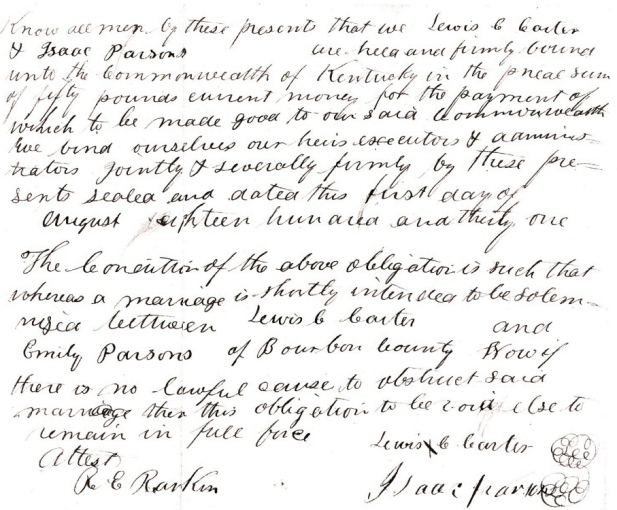 Know all men by these presents that we Lewis C Carter
& Isaac Parsons are held and firmly bound
unto the Commonwealth of Kentucky in the penal sum
of fifty pounds current money for the payment of
which to be made good to our said Commonwealth
we bind ourselves our heirs executors & adminis-
trators Jointly & severally firmly by these pre-
sents sealed and dated this first day of
August eighteen hundred and thirty one
The Condition of the above obligation is such that
whereas a marriage is shortly intended to be solem-
nized between Lewis C Carter and
Emily Parsons of Bourbon County Now if
there is no lawful cause to obstruct said
marriage then this obligation to be void else to
remain in full force
Lewis C Carter
Attest
R E Rankin
Isaac Parsons